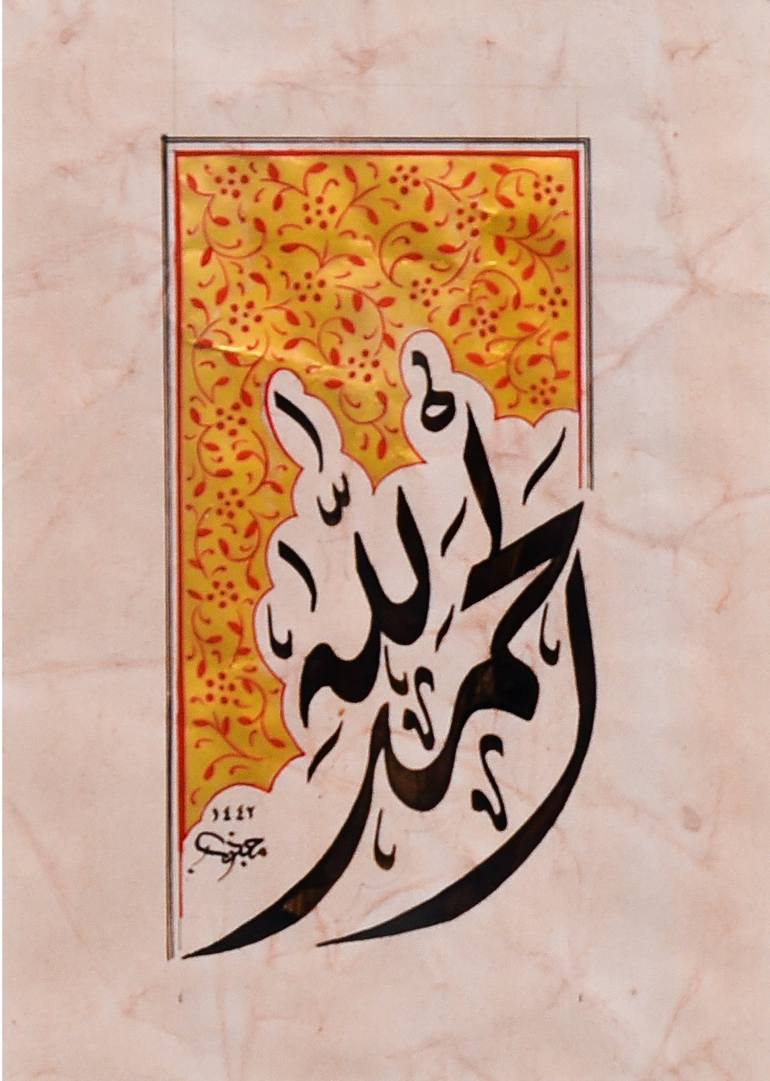 الحمد لله
١٤٤٢